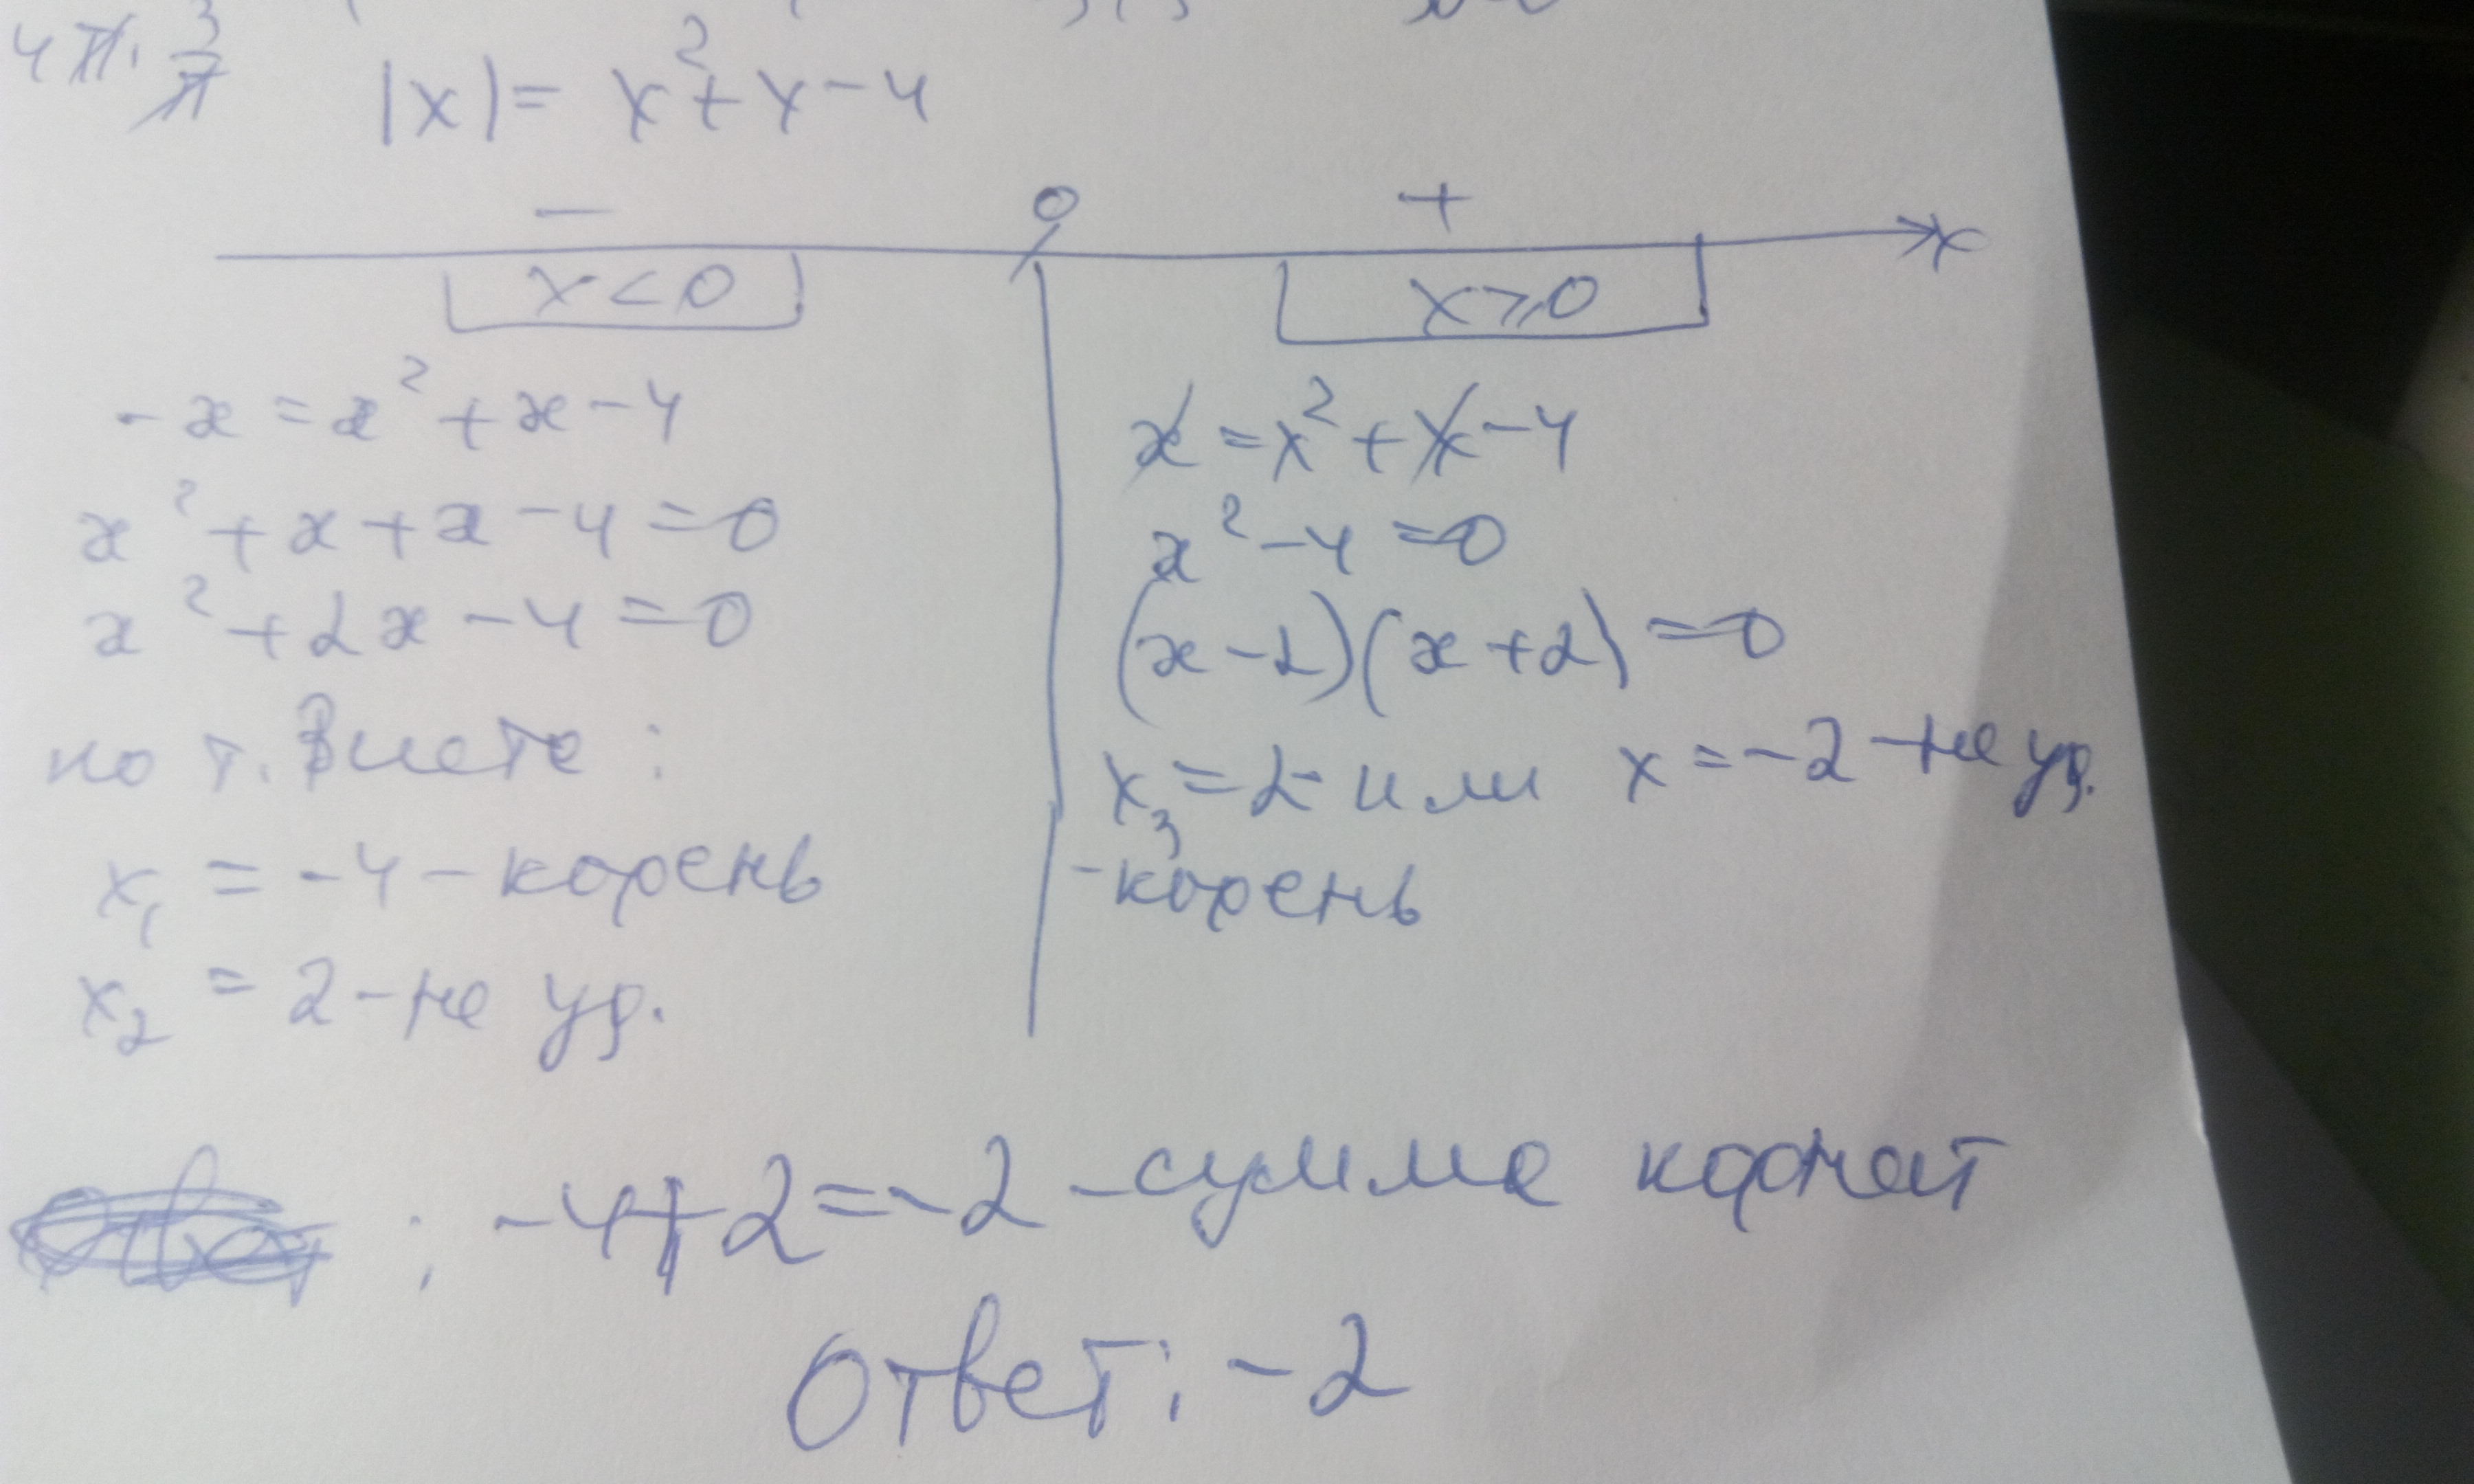 4π · 3/π
|x| = x² + x - 4
- 0 + x
x < 0
x ⩾ 0
-x = x² + x - 4
x² + x + x - 4 = 0
x² + 2x - 4 = 0
по т. Виета:
x₁ = -4 - корень
x₂ = 2 - не уд.
x = x² + x - 4
x² - 4 = 0
(x - 2)(x + 2) = 0
x₃ = 2 - или x = -2 - не уд.
- корень
: -4 + 2 = -2 - сумма корней
Ответ: -2